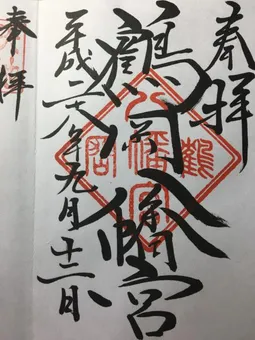 奉拝
鶴岡八幡宮
鶴岡八幡宮
平成二十八年九月十二日
奉拝